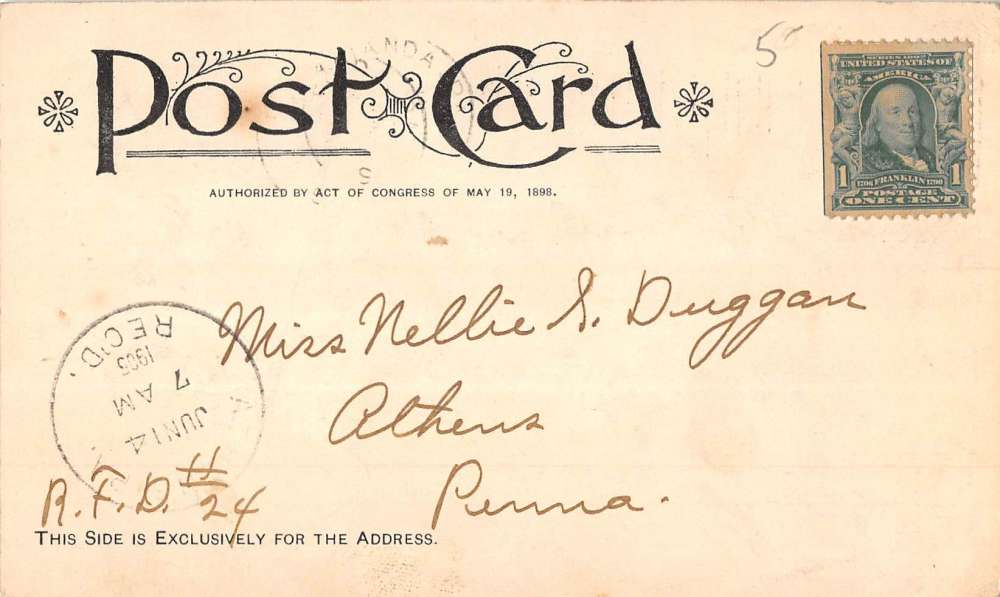 Post Card
AUTHORIZED BY ACT OF CONGRESS OF MAY 19, 1898.
5
SERIES 1902
UNITED STATES OF
AMERICA
1 1706 FRANKLIN 1790 1
POSTAGE
ONE CENT
Miss Nellie S. Duggan
Athens
Penna.
R.F.D. # 24
JUN 14
7 AM
1905
REC'D.
THIS SIDE IS EXCLUSIVELY FOR THE ADDRESS.